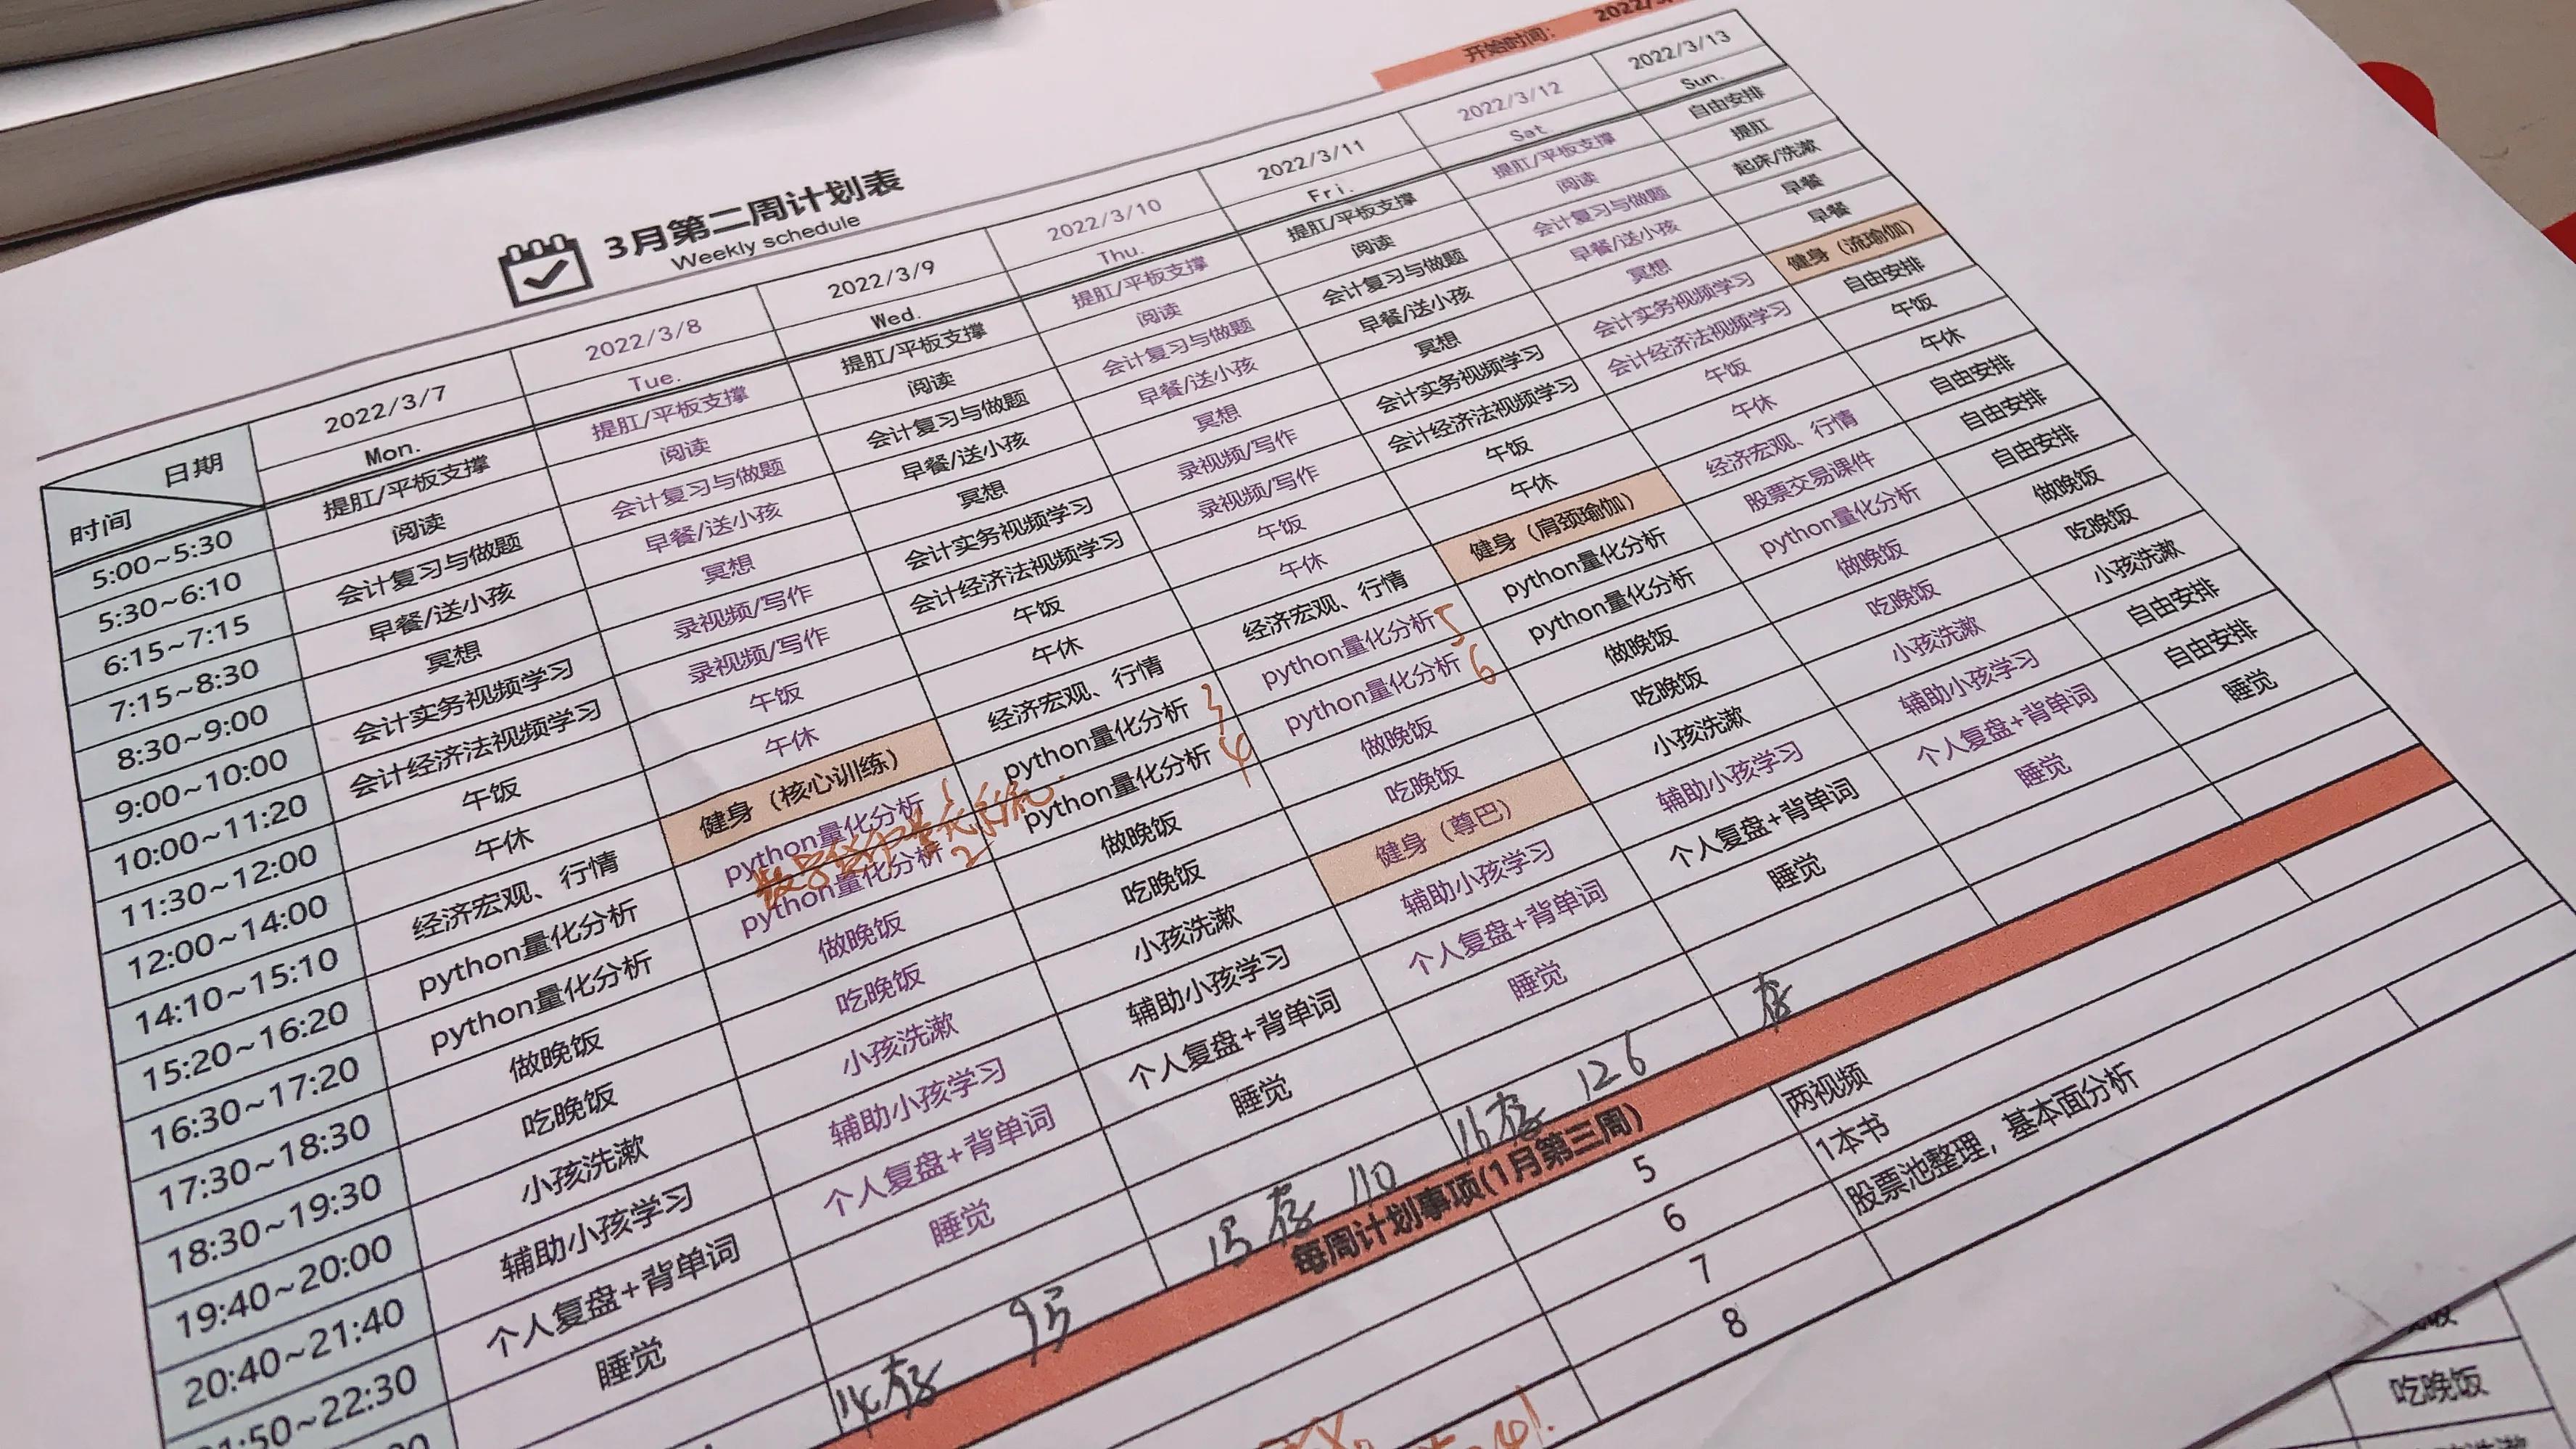 开始时间：
3月第二周计划表
Weekly schedule
日期 2022/3/7 2022/3/8 2022/3/9 2022/3/10 2022/3/11 2022/3/12 2022/3/13
时间 Mon. Tue. Wed. Thu. Fri. Sat Sun.
5:00~5:30 提肛/平板支撑 提肛/平板支撑 提肛/平板支撑 提肛/平板支撑 提肛/平板支撑 提肛/平板支撑 自由安排
5:30~6:10 阅读 阅读 阅读 阅读 阅读 阅读 提肛
6:15~7:15 会计复习与做题 会计复习与做题 会计复习与做题 会计复习与做题 会计复习与做题 会计复习与做题 起床/洗漱
7:15~8:30 早餐/送小孩 早餐/送小孩 早餐/送小孩 早餐/送小孩 早餐/送小孩 早餐/送小孩 早餐
8:30~9:00 冥想 冥想 冥想 冥想 冥想 冥想 早餐
9:00~10:00 会计实务视频学习 录视频/写作 会计实务视频学习 录视频/写作 会计实务视频学习 会计实务视频学习 健身（流瑜伽）
10:00~11:20 会计经济法视频学习 录视频/写作 会计经济法视频学习 录视频/写作 会计经济法视频学习 会计经济法视频学习 自由安排
11:30~12:00 午饭 午饭 午饭 午饭 午饭 午饭 午饭
12:00~14:00 午休 午休 午休 午休 午休 午休 午休
14:10~15:10 经济宏观、行情 健身（核心训练） 经济宏观、行情 经济宏观、行情 健身（肩颈瑜伽） 经济宏观、行情 自由安排
15:20~16:20 python量化分析 python量化分析 python量化分析 3 python量化分析 5 python量化分析 股票交易课件 自由安排
16:30~17:20 python量化分析 python量化分析 2 python量化分析 4 python量化分析 6 python量化分析 python量化分析 自由安排
17:30~18:30 做晚饭 做晚饭 做晚饭 做晚饭 做晚饭 做晚饭 做晚饭
18:30~19:30 吃晚饭 吃晚饭 吃晚饭 吃晚饭 吃晚饭 吃晚饭 吃晚饭
19:40~20:00 小孩洗漱 小孩洗漱 小孩洗漱 健身（尊巴） 小孩洗漱 小孩洗漱 小孩洗漱
20:40~21:40 辅助小孩学习 辅助小孩学习 辅助小孩学习 辅助小孩学习 辅助小孩学习 辅助小孩学习 自由安排
1:50~22:30 个人复盘+背单词 个人复盘+背单词 个人复盘+背单词 个人复盘+背单词 个人复盘+背单词 个人复盘+背单词 自由安排
睡觉 睡觉 睡觉 睡觉 睡觉 睡觉 睡觉
14存 95 15存 110 16存 126 存
每周计划事项(1月第三周)
5 两视频
6 1本书
7 股票池整理，基本面分析
8
吃晚饭